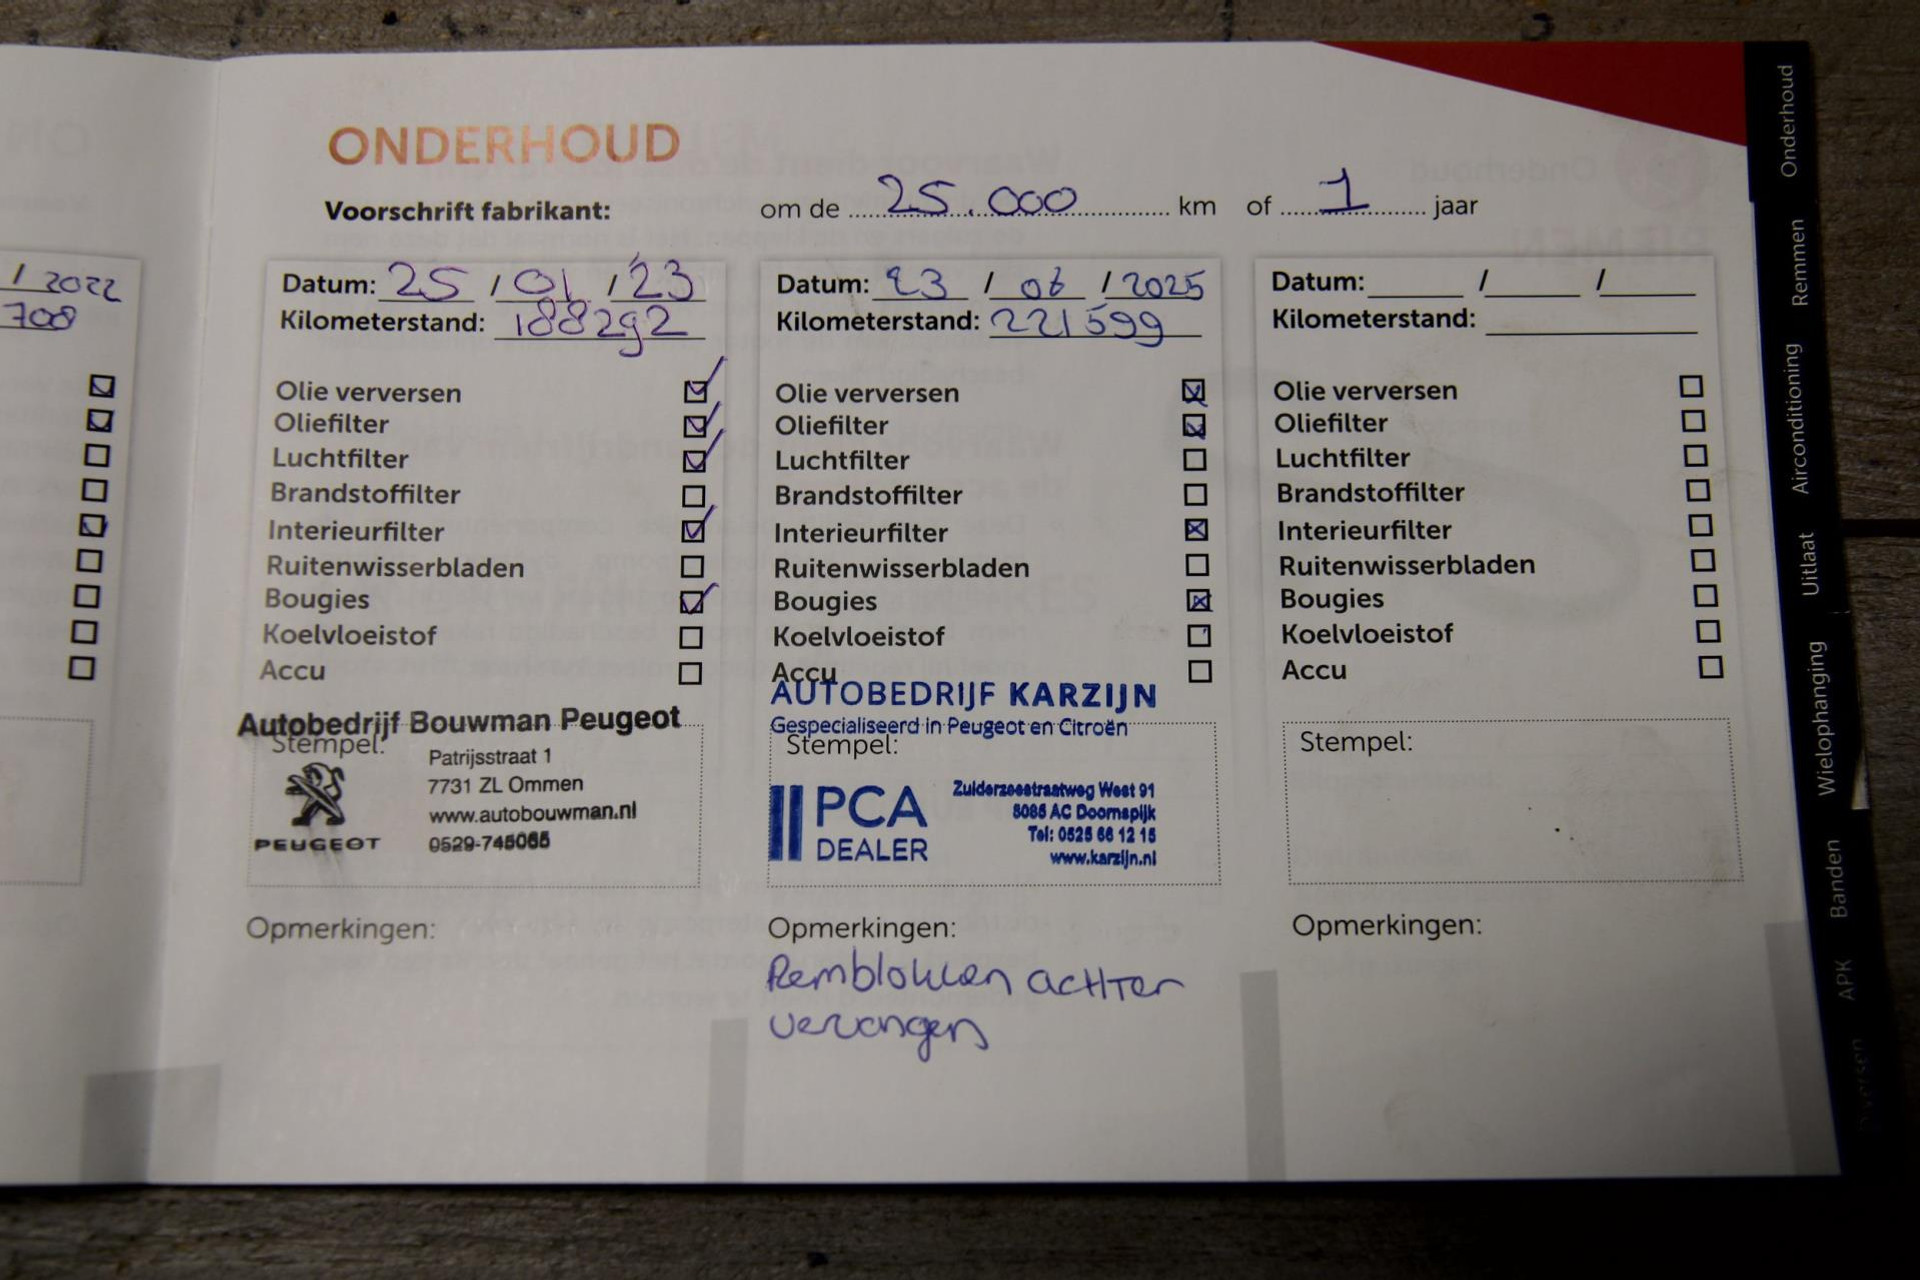 ONDERHOUD
Voorschrift fabrikant: om de 25.000 km of 1 jaar
/ 2022
708
Datum: 25 / 01 / 23
Kilometerstand: 188292
Olie verversen
Oliefilter
Luchtfilter
Brandstoffilter
Interieurfilter
Ruitenwisserbladen
Bougies
Koelvloeistof
Accu
Autobedrijf Bouwman Peugeot
Stempel:
Patrijsstraat 1
7731 ZL Ommen
www.autobouwman.nl
0529-745065
PEUGEOT
Opmerkingen:
Datum: 23 / 06 / 2025
Kilometerstand: 221599
Olie verversen
Oliefilter
Luchtfilter
Brandstoffilter
Interieurfilter
Ruitenwisserbladen
Bougies
Koelvloeistof
Accu
AUTOBEDRIJF KARZIJN
Gespecialiseerd in Peugeot en Citroën
Stempel:
PCA
DEALER
Zuiderzeestraatweg West 91
8085 AC Doornspijk
Tel: 0525 66 12 15
www.karzijn.nl
Opmerkingen:
Remblokken achter
vervangen
Datum: / /
Kilometerstand:
Olie verversen
Oliefilter
Luchtfilter
Brandstoffilter
Interieurfilter
Ruitenwisserbladen
Bougies
Koelvloeistof
Accu
Stempel:
Opmerkingen:
Onderhoud
Remmen
Airconditioning
Uitlaat
Wielophanging
Banden
APK